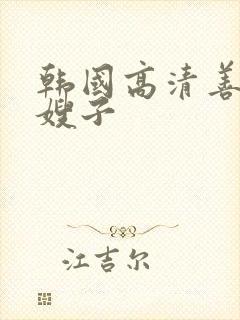 韩國高清善
嫂子
江吉尔